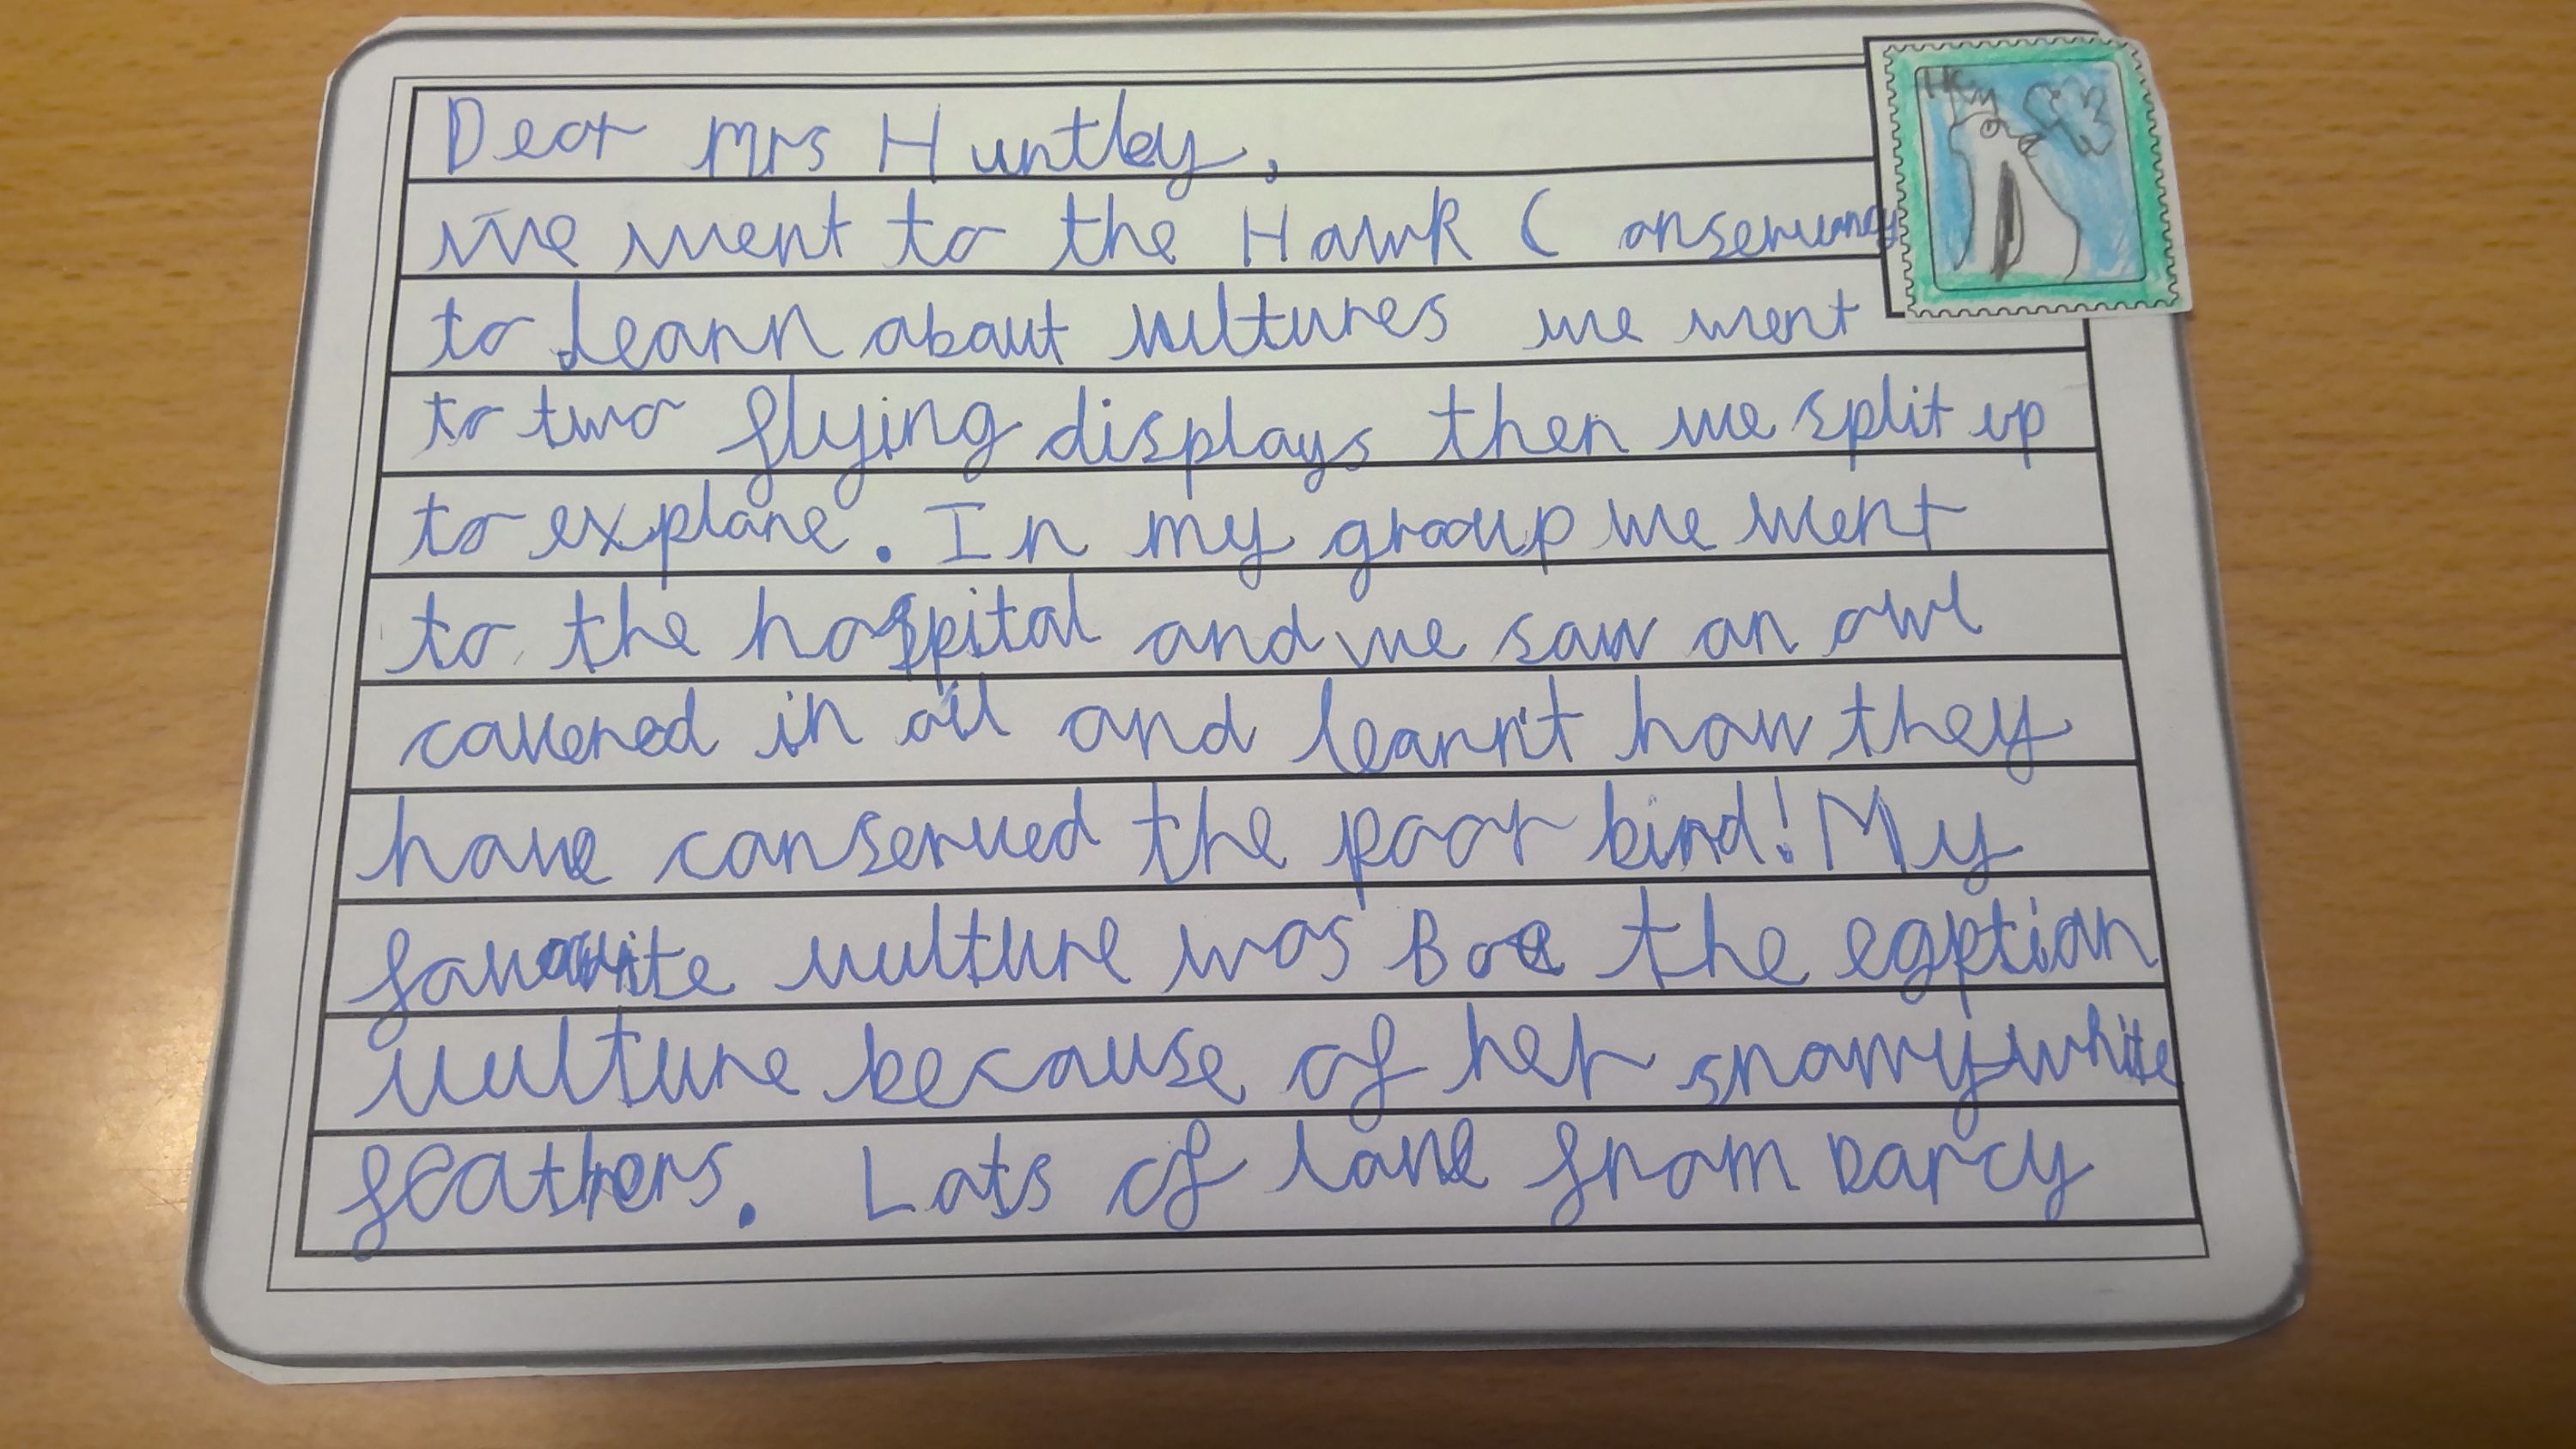 Dear Mrs Huntley,
we went to the Hawk Conservancy
to learn about vultures we went
to two flying displays then we split up
to explore. In my group we went
to the hospital and we saw an owl
covered in oil and learn't how they
have conserved the poor bird! My
favourite vulture was Boe the egptian
vulture because of her snowy-white
feathers. Lots of love from Darcy